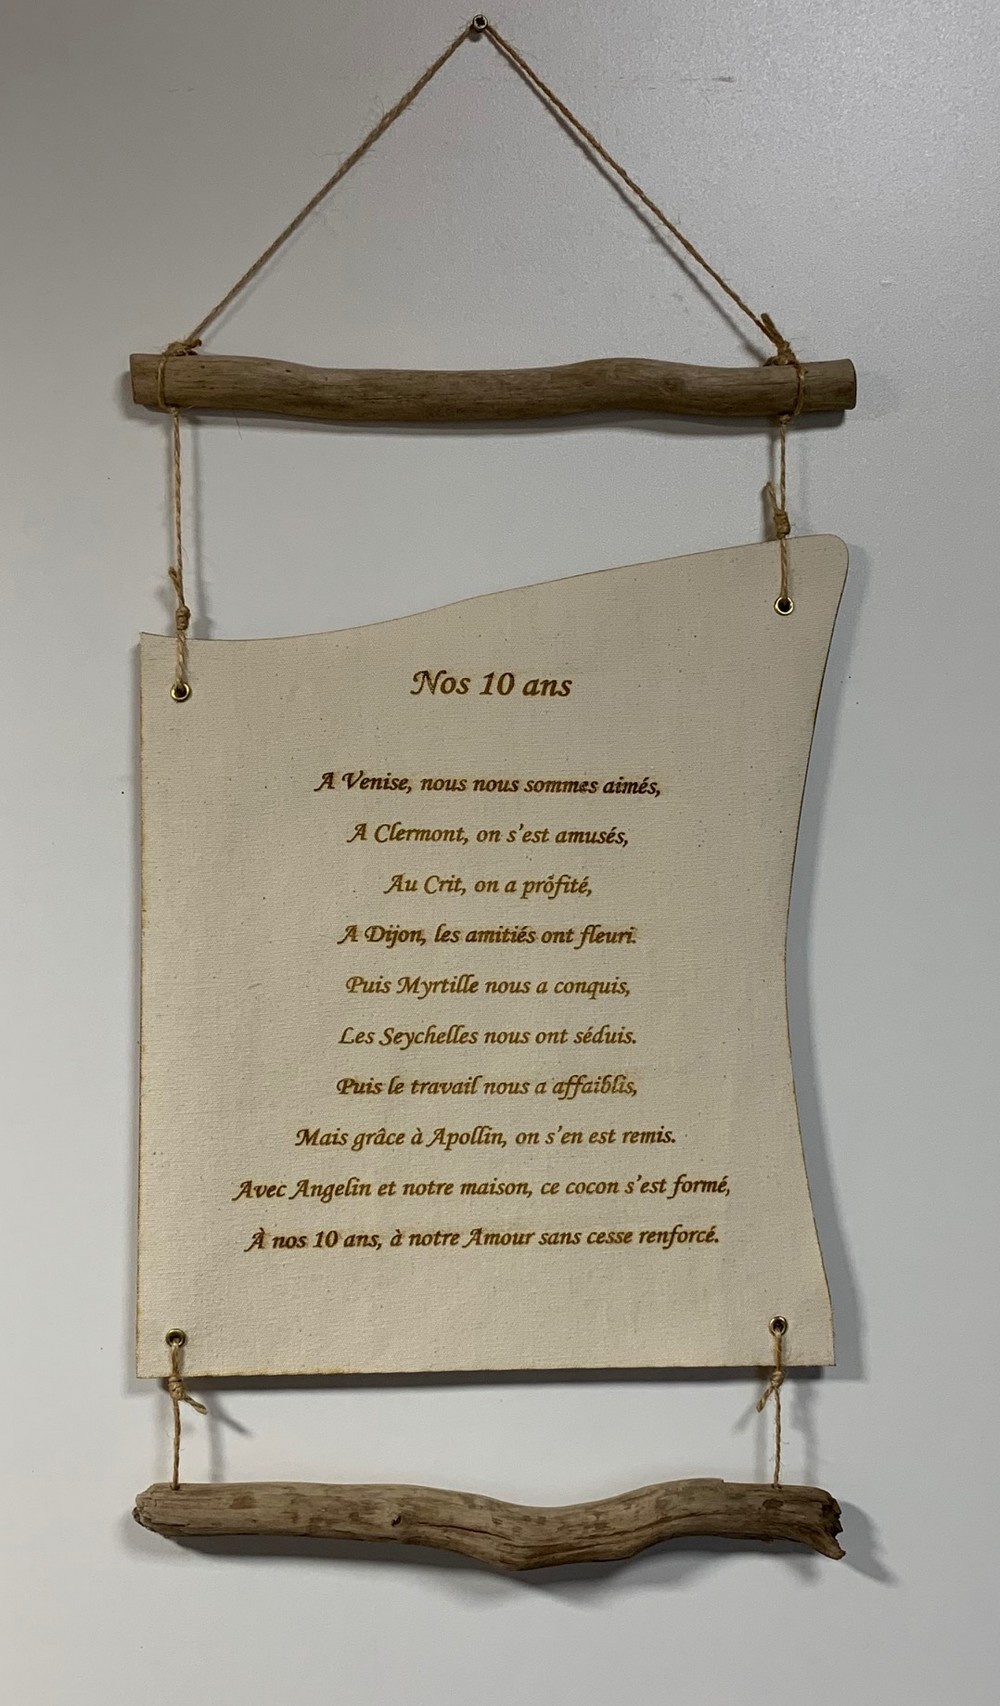 Nos 10 ans
A Venise, nous nous sommes aimés,
A Clermont, on s'est amusés,
Au Crit, on a profité,
A Dijon, les amitiés ont fleuri.
Puis Myrtille nous a conquis,
Les Seychelles nous ont séduis.
Puis le travail nous a affaiblis,
Mais grâce à Apollin, on s'en est remis.
Avec Angelin et notre maison, ce cocon s'est formé,
À nos 10 ans, à notre Amour sans cesse renforcé.